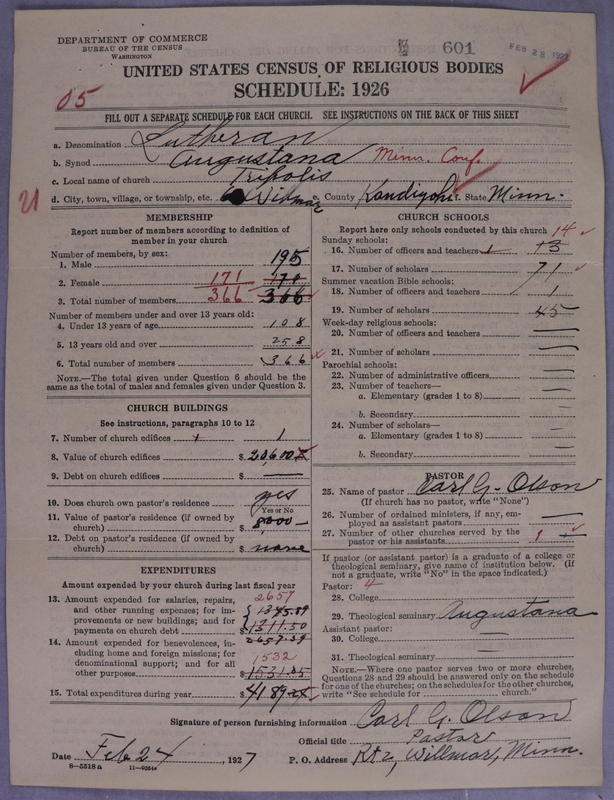 DEPARTMENT OF COMMERCE
BUREAU OF THE CENSUS
WASHINGTON
601
FEB 28 1927
UNITED STATES CENSUS OF RELIGIOUS BODIES
SCHEDULE: 1926
05
FILL OUT A SEPARATE SCHEDULE FOR EACH CHURCH. SEE INSTRUCTIONS ON THE BACK OF THIS SHEET
a. Denomination Lutheran
b. Synod Augustana Minn. Conf.
c. Local name of church Tripolis
d. City, town, village, or township, etc. Willmar e. County Kandiyohi f. State Minn.
MEMBERSHIP
Report number of members according to definition of
member in your church
Number of members, by sex:
1. Male 195
2. Female 171 170
3. Total number of members 366 366
Number of members under and over 13 years old:
4. Under 13 years of age 108
5. 13 years old and over 258
6. Total number of members 366
NOTE.—The total given under Question 6 should be
the same as the total of males and females given under Question 3.
CHURCH BUILDINGS
See instructions, paragraphs 10 to 12
7. Number of church edifices 1
8. Value of church edifices $ 20,600
9. Debt on church edifices $ —
10. Does church own pastor's residence yes
Yes or No
11. Value of pastor's residence (if owned by
church) $ 8000 —
12. Debt on pastor's residence (if owned by
church) $ none
EXPENDITURES
Amount expended by your church during last fiscal year
13. Amount expended for salaries, repairs, 2657
and other running expenses; for im- 1345.89
provements or new buildings; and for
payments on church debt $ 1311.50
2657.39
14. Amount expended for benevolences, in-
cluding home and foreign missions; for
denominational support; and for all 1532
other purposes $ 1531.85
15. Total expenditures during year $ 4189.24
CHURCH SCHOOLS
Report here only schools conducted by this church 14
Sunday schools:
16. Number of officers and teachers 13
17. Number of scholars 71
Summer vacation Bible schools:
18. Number of officers and teachers 1
19. Number of scholars 45
Week-day religious schools:
20. Number of officers and teachers —
21. Number of scholars —
Parochial schools:
22. Number of administrative officers —
23. Number of teachers—
a. Elementary (grades 1 to 8) —
b. Secondary —
24. Number of scholars—
a. Elementary (grades 1 to 8) —
b. Secondary —
PASTOR
25. Name of pastor Carl G. Olson
(If church has no pastor, write "None")
26. Number of ordained ministers, if any, em-
ployed as assistant pastors —
27. Number of other churches served by the
pastor or his assistants 1
If pastor (or assistant pastor) is a graduate of a college or
theological seminary, give name of institution below. (If
not a graduate, write "No" in the space indicated.)
Pastor: 4
28. College
29. Theological seminary Augustana
Assistant pastor:
30. College —
31. Theological seminary —
NOTE.—Where one pastor serves two or more churches,
Questions 28 and 29 should be answered only on the schedule
for one of the churches; on the schedules for the other churches,
write "See schedule for church."
Signature of person furnishing information Carl G. Olson
Official title Pastor
Date Feb 24, 1927 P. O. Address Rt 2, Willmar, Minn.
8—5518 a